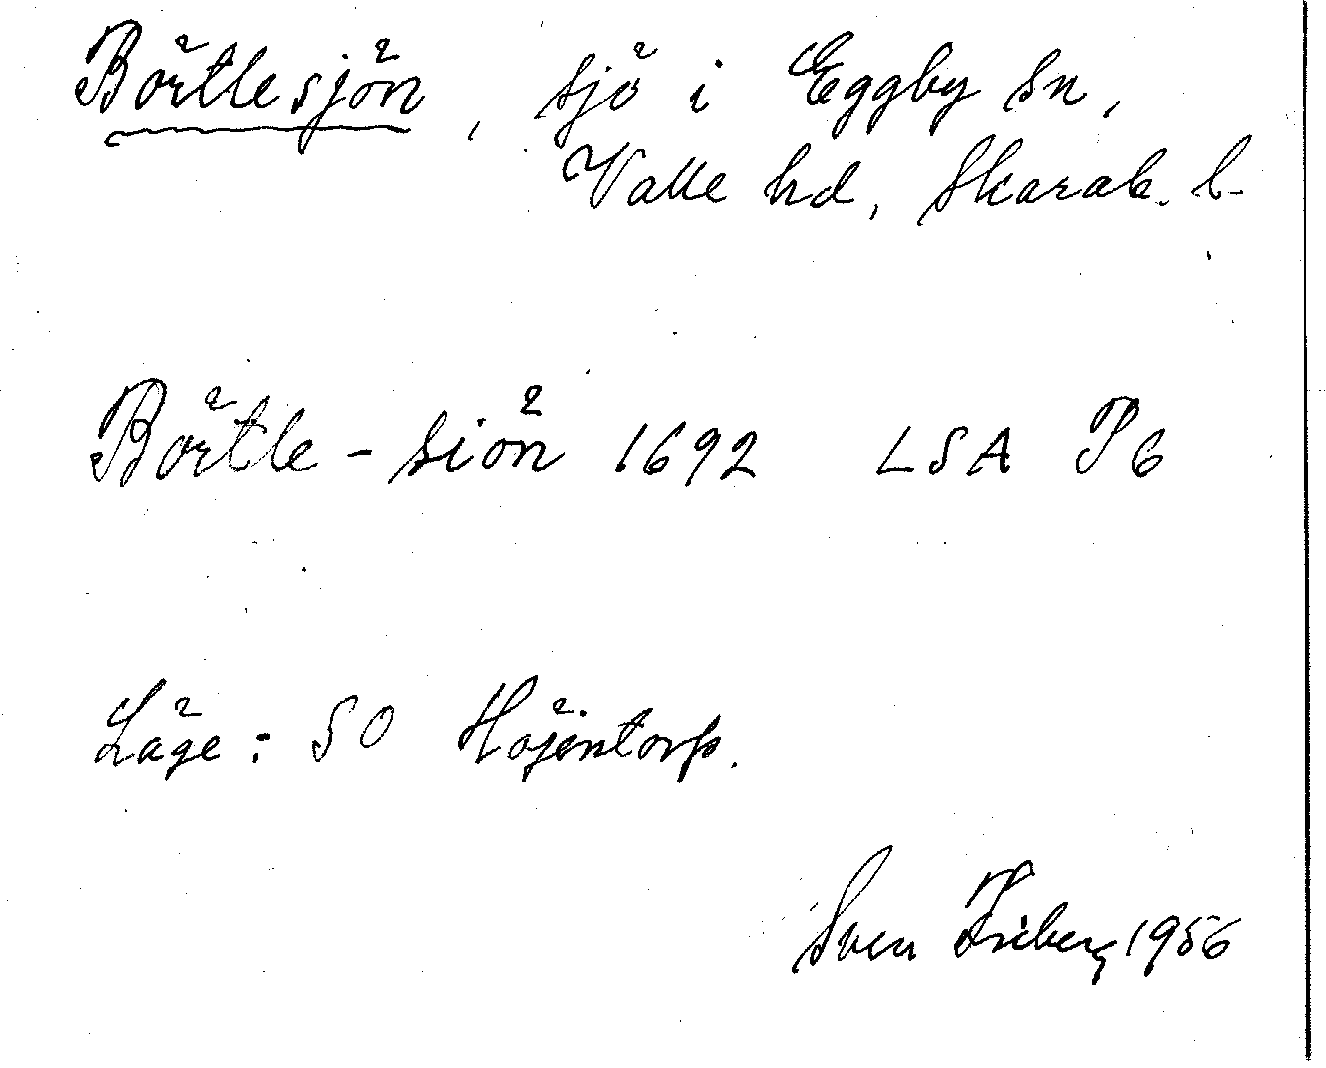 Börtlesjön, sjö i Eggby sn,
Valle hd, Skarab. l.
Börtle-siön 1692 LSA P6
Läge: SO Höjentorp.
Sven Friberg 1956